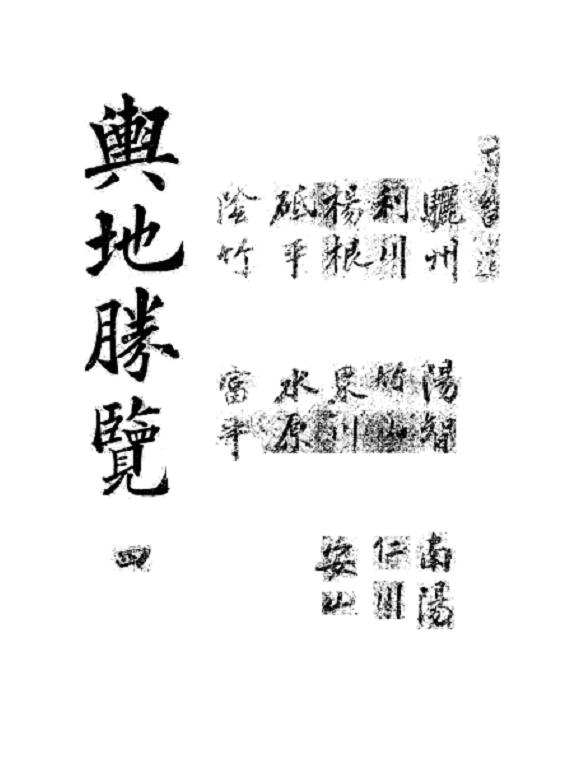 京畿道
驪州 陽智 南陽
利川 竹山 仁川
楊根 果川 安山
砥平 水原
陰竹 富平
輿地勝覽 四